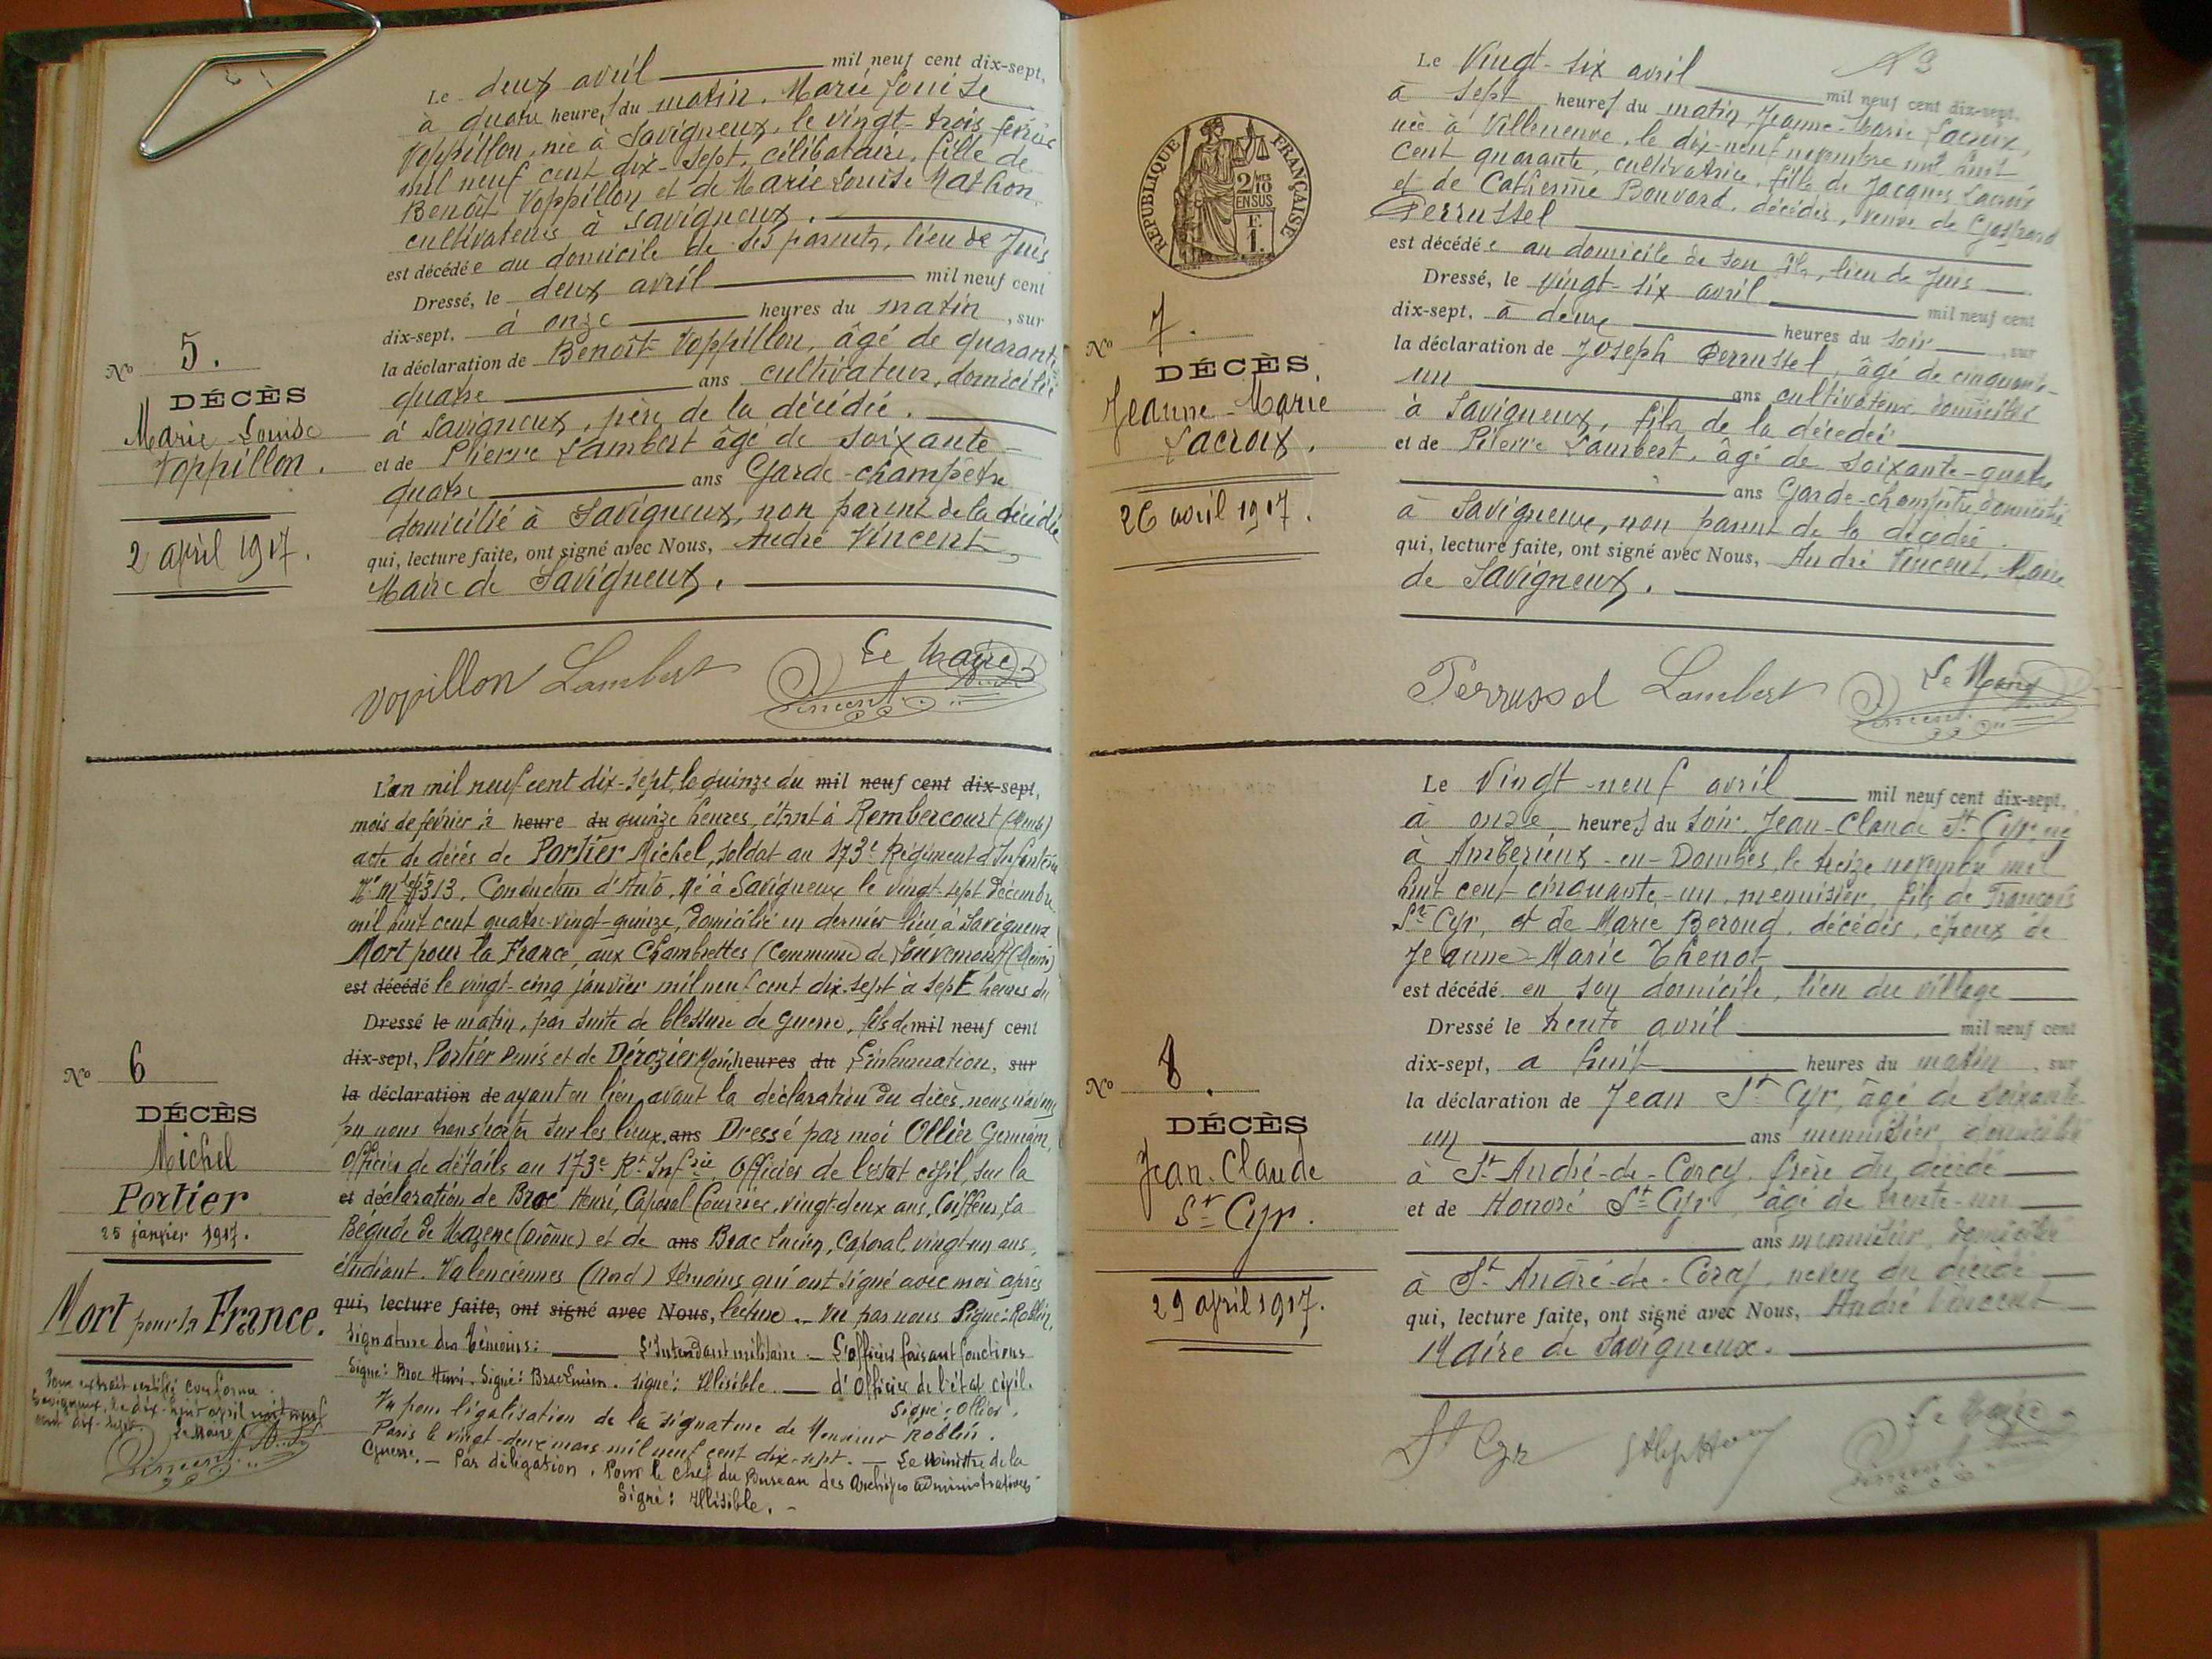 Le deux avril mil neuf cent dix-sept,
à quatre heures du matin, Marie Louise
Voppillon, née à Savigneux, le vingt-trois février
mil neuf cent dix-sept, célibataire, fille de
Benoît Voppillon et de Marie Louise Mathon,
cultivateurs à Savigneux.
est décédée au domicile de ses parents, lieu de Juis
Dressé, le deux avril mil neuf cent
dix-sept, à onze heures du matin, sur
la déclaration de Benoît Voppillon, âgé de quarante
quatre ans cultivateur, domicilié
à Savigneux, père de la décédée.
et de Pierre Lambert âgé de soixante-
quatre ans Garde-champêtre
domicilié à Savigneux, non parent de la décédée
qui, lecture faite, ont signé avec Nous, André Vincent,
Maire de Savigneux.
Vopillon Lambert Le Maire
Vincent
No 5.
DÉCÈS
Marie-Louise
Voppillon.
2 april 1917.
L'an mil neuf cent dix-sept, le quinze du mil neuf cent dix-sept,
mois de février à heure du quinze heures, étant à Rembercourt (Meuse)
acte de décès de Portier Michel, soldat au 173e Régiment d'Infanterie
No Mle 4313, Conducteur d'Auto, né à Savigneux le vingt-sept décembre
mil huit cent quatre-vingt-quinze, domicilié en dernier lieu à Savigneux
Mort pour la France, aux Chambrettes (Commune de Louvemont (Meuse)
est décédé le vingt-cinq janvier mil neuf cent dix-sept à sept heures du
Dressé le matin, par suite de blessure de guerre, fils de mil neuf cent
dix-sept, Portier Denis et de Dérozier Marie heures du L'inhumation, sur
la déclaration de ayant eu lieu avant la déclaration du décès, nous n'avons
pu nous transporter sur les lieux. ans Dressé par moi Ollier Germain,
Officier de détails au 173e Rt Infrie, Officier de l'état civil, sur la
et déclaration de Broc Henri, Caporal Courrier, vingt-deux ans, Coiffeur, La
Bégude de Mazenc (Drôme) et de ans Brac Lucien, Caporal, vingt-un ans,
étudiant. Valenciennes (Nord) témoins qui ont signé avec moi après
qui, lecture faite, ont signé avec Nous, lecture. Vu par nous Signé: Roblin,
Signature des témoins: L'Intendant militaire. L'officier faisant fonctions
Signé: Broc Henri. Signé: Brac Lucien. Signé: Illisible. d'Officier de l'état civil.
Signé: Ollier.
Vu pour légalisation de la signature de Monsieur Roblin.
Paris le vingt-deux mars mil neuf cent dix-sept. Le Ministre de la
Guerre. Par délégation, Pour le chef du Bureau des Archives administratives
Signé: Illisible.
No 6
DÉCÈS
Michel
Portier
25 janvier 1917.
Mort pour la France.
Pour extrait certifié conforme.
Savigneux, le dix-huit april mil neuf
cent dix-sept.
Le Maire
Vincent
Le Vingt-six avril mil neuf cent dix-sept,
à sept heures du matin, Jeanne-Marie Lacroix,
née à Villeneuve, le dix-neuf novembre mil huit
cent quarante, cultivatrice, fille de Jacques Lacroix
et de Catherine Bouvard, décédés, veuve de Gaspard
Perrussel
est décédée au domicile de son fils, lieu de Juis
Dressé, le vingt-six avril mil neuf cent
dix-sept, à deux heures du soir, sur
la déclaration de Joseph Perrussel, âgé de cinquante-
un ans cultivateur domicilié
à Savigneux, fils de la décédée
et de Pierre Lambert, âgé de soixante-quatre
ans Garde-champêtre domicilié
à Savigneux, non parent de la décédée.
qui, lecture faite, ont signé avec Nous, André Vincent, Maire
de Savigneux.
Perrussel Lambert Le Maire
Vincent
RÉPUBLIQUE FRANÇAISE
2/10
EN SUS
F.
1.
No 7.
DÉCÈS
Jeanne-Marie
Lacroix.
26 avril 1917.
Le Vingt-neuf avril mil neuf cent dix-sept,
à onze heures du soir, Jean-Claude St Cyr, né
à Ambérieux-en-Dombes, le treize novembre mil
huit cent cinquante-un, menuisier, fils de François
St Cyr, et de Marie Beroud, décédés, époux de
Jeanne-Marie Thenot
est décédé en son domicile, lieu du village
Dressé le trente avril mil neuf cent
dix-sept, à huit heures du matin, sur
la déclaration de Jean St Cyr, âgé de soixante
un ans menuisier, domicilié
à St André-de-Corcy, frère du décédé
et de Honoré St Cyr, âgé de trente-un
ans menuisier, domicilié
à St André-de-Corcy, neveu du décédé
qui, lecture faite, ont signé avec Nous, André Vincent
Maire de Savigneux.
St Cyr Le Maire
Vincent
No 8.
DÉCÈS
Jean-Claude
St Cyr.
29 april 1917.